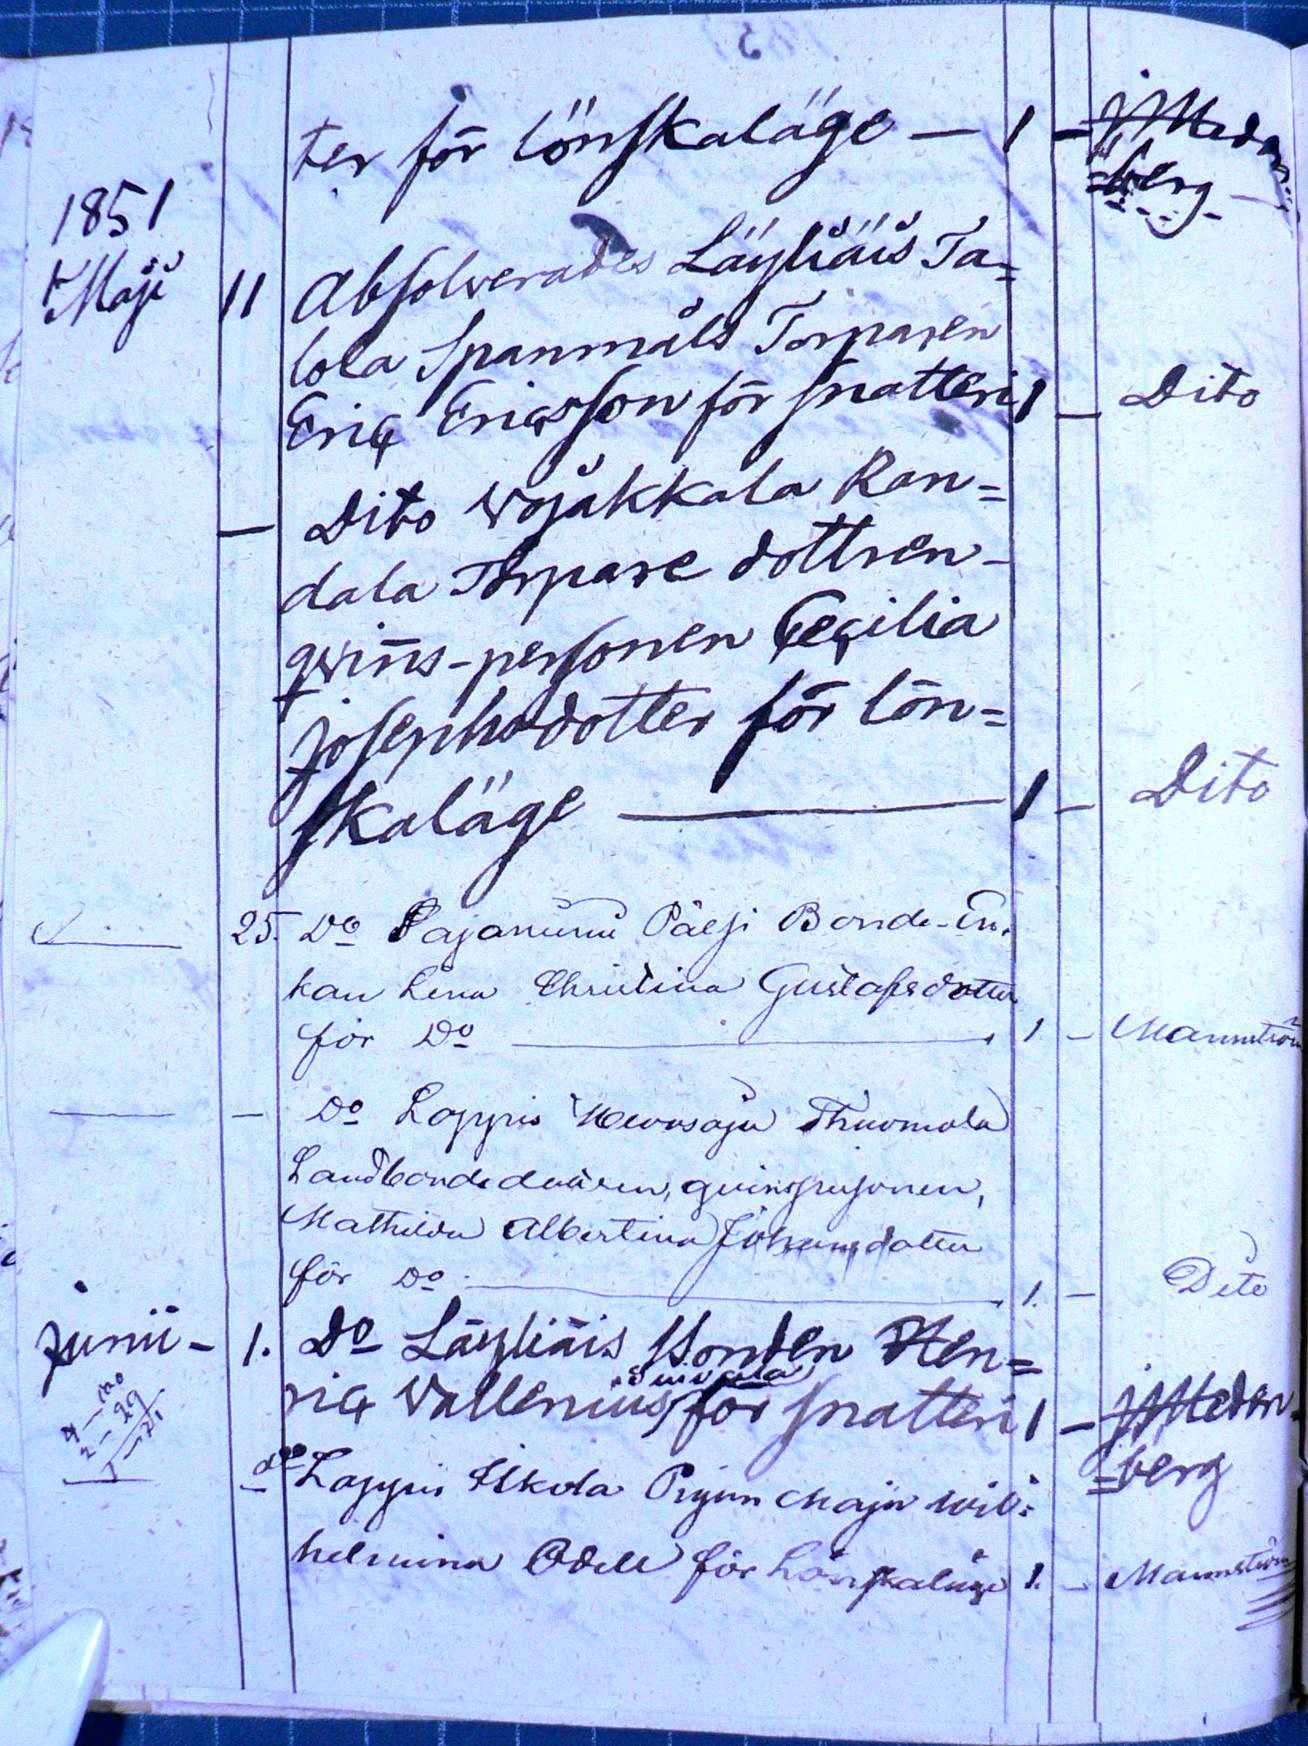 ter för lönskaläge — 1 — J Meden=
=berg
1851
Maji 11 Absolverades Läyliäis Ta=
lola Spanmåls Torparen
Eric Ericsson för snatteri 1 — Dito
— Dito Wojakkala Ran=
dala Torpare dottren
qvins-personen Cecilia
Josephsdotter för lön=
skaläge — 1 — Dito
25. Do Pajanumi Pälsi Bonde-En-
kan Lena Christina Gustafsdotter
för Do — 1 — Mannström
— — Do Loppis Hevosoja Thuomola
Landbonde dottren, qvinspersonen,
Mathilda Albertina Johansdotter
för Do — 1. — Dito
Junii — 1. Do Läyliäis Bonden Hen=
ric Wallenius för snatteri 1 — J Meden
=berg
do Loppis Pigan Maja Wil=
helmina Odell för Lönskaläge 1. — Mannström